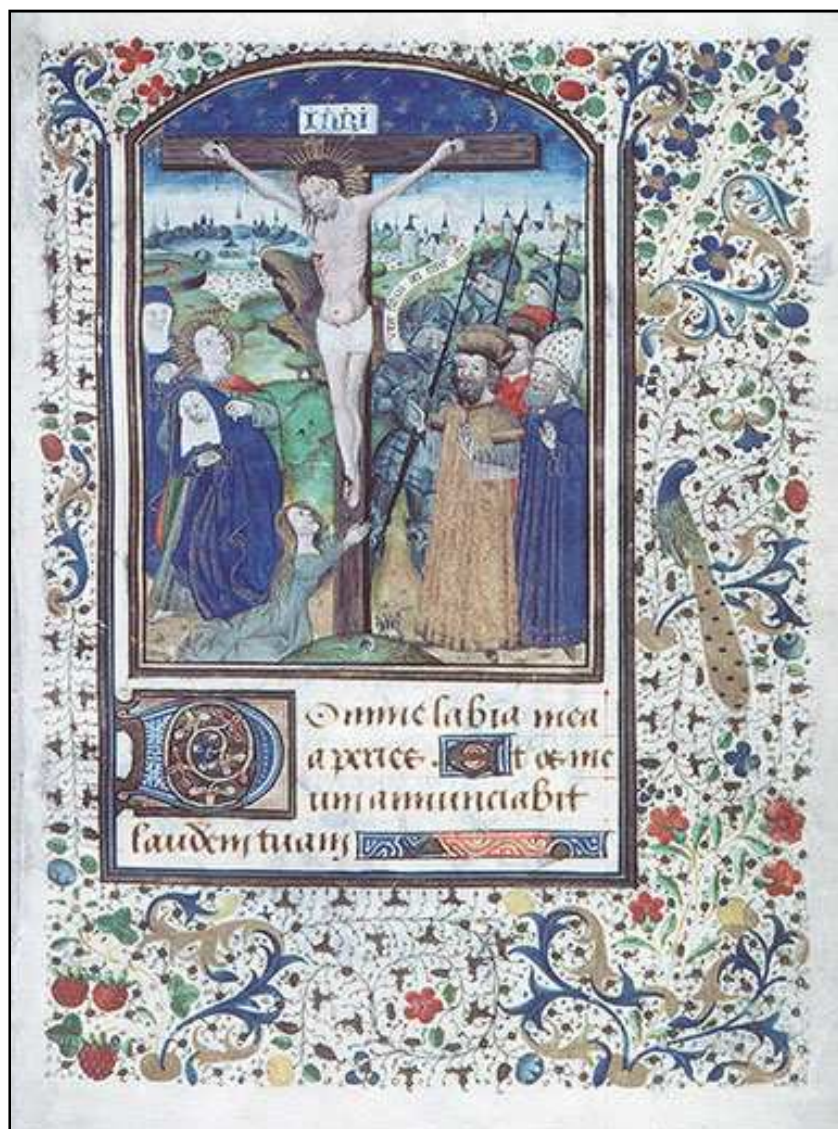 INRI
Domine labia mea
aperies . Et os me
um annunciabit
laudem tuam